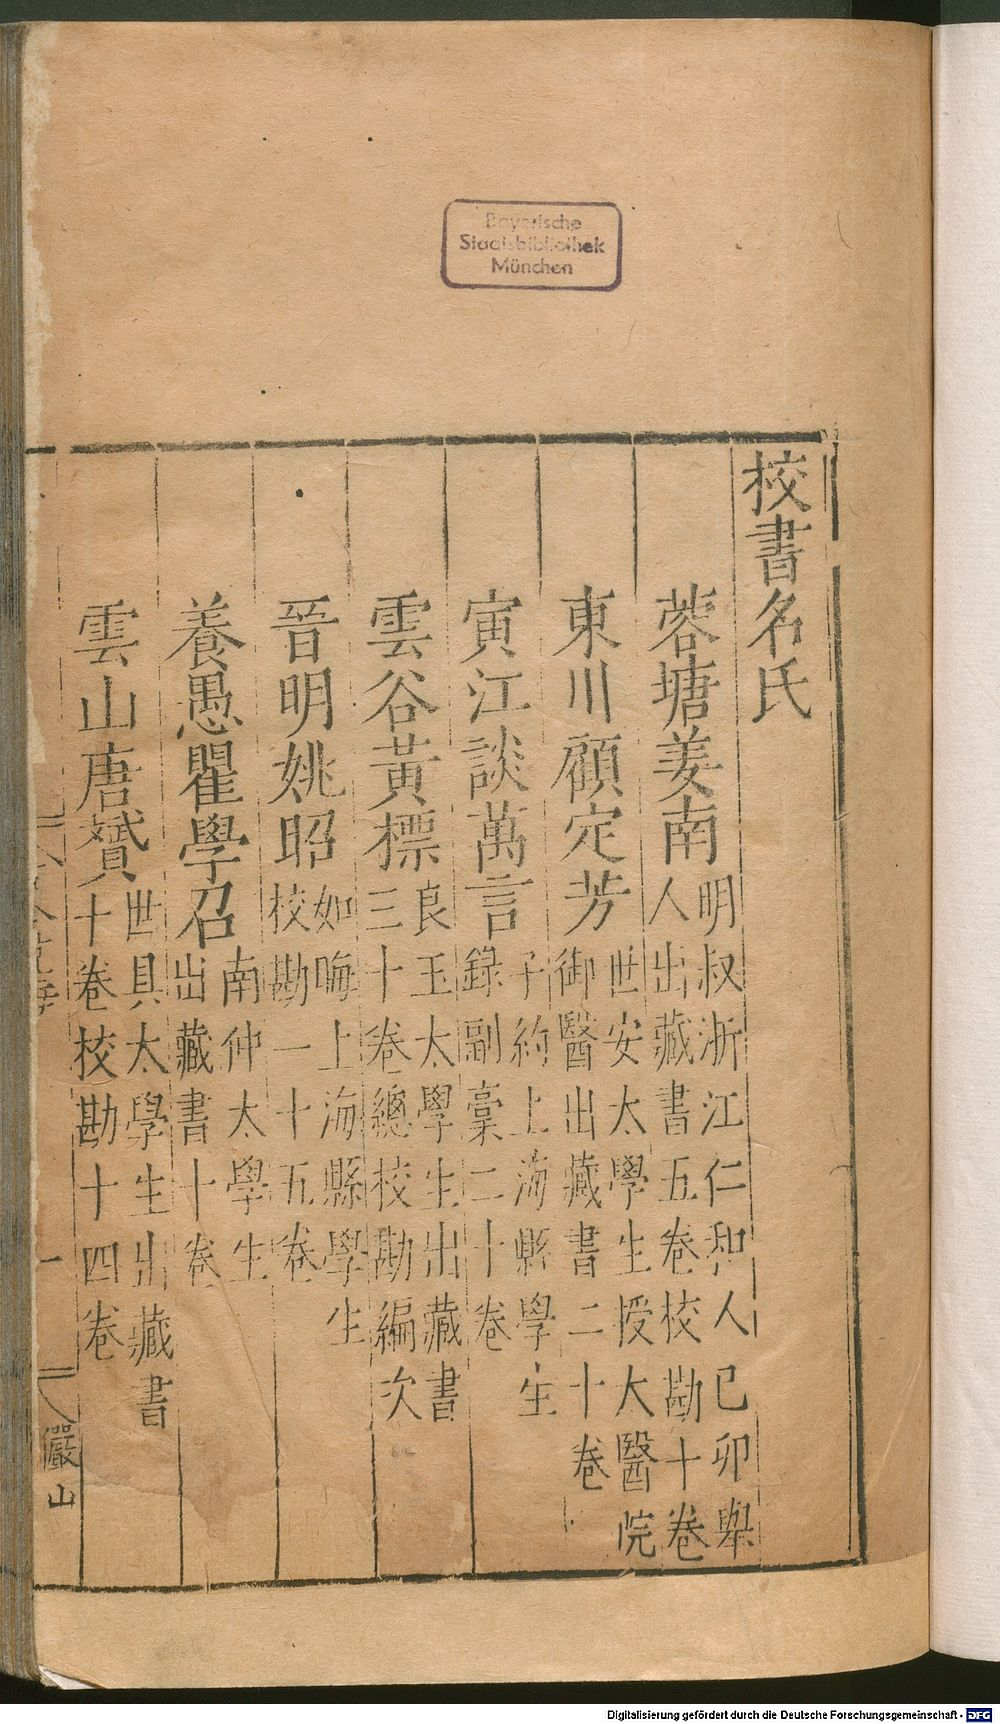 Bayerische
Staatsbibliothek
München
校書名氏
蓉塘姜南明叔浙江仁和人己卯舉
人出藏書五卷校勘十卷
東川顧定芳世安太學生授太醫院
御醫出藏書二十卷
寅江談萬言子約上海縣學生
錄副稾二十卷
雲谷黃標良玉太學生出藏書
三十卷總校勘編次
晉明姚昭如晦上海縣學生
校勘一十五卷
養愚瞿學召南仲太學生
出藏書十卷
雲山唐贇世具太學生出藏書
十卷校勘十四卷
一
儼山
Digitalisierung gefördert durch die Deutsche Forschungsgemeinschaft - DFG